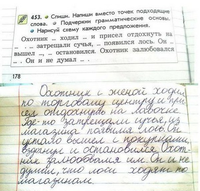 453. Спиши. Напиши вместо точек подходящие
слова. Подчеркни грамматические основы.
Нарисуй схему каждого предложения.
Охотник ... ходил ... и присел отдохнуть на
... . ... затрещали сучья, ... появился лось. Он ...
вышел ..., ... остановился. Охотник залюбовался
... . Он и не думал ... .
178
Охотник с женой ходил
по торговому центру и при
сел отдохнуть на лавочке.
Где-то затрещали сучья, из
магазина появился лось. Он
вышел с покупками,
остановился. Охот
ник залюбовался им. Он и не
думал, что лоси ходят по
магазинам.